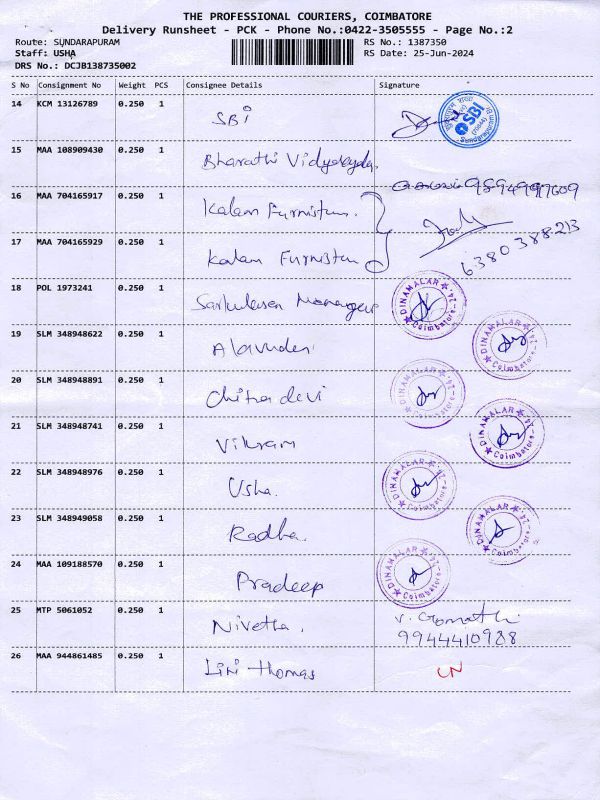 THE PROFESSIONAL COURIERS, COIMBATORE
Delivery Runsheet - PCK - Phone No.:0422-3505555 - Page No.:2
Route: SUNDARAPURAM
RS No.: 1387350
Staff: USHA
RS Date: 25-Jun-2024
DRS No.: DCJB138735002
S No Consignment No Weight PCS Consignee Details Signature
14 KCM 13126789 0.250 1 SBI SBI
15 MAA 108909430 0.250 1 Bharathi 9894997609
16 MAA 704165917 0.250 1 Kalam
17 MAA 704165929 0.250 1 Kalam 6380388213
18 POL 1973241 0.250 1 DINAMALAR Coimbatore
19 SLM 348948622 0.250 1 DINAMALAR Coimbatore
20 SLM 348948891 0.250 1 Chitra devi DINAMALAR Coimbatore
21 SLM 348948741 0.250 1 Vikram DINAMALAR Coimbatore
22 SLM 348948976 0.250 1 Usha. DINAMALAR Coimbatore
23 SLM 348949058 0.250 1 Radha. DINAMALAR Coimbatore
24 MAA 109188570 0.250 1 Pradeep DINAMALAR Coimbatore
25 MTP 5061052 0.250 1 Nivetha. V. Gomathi
9944410988
26 MAA 944861485 0.250 1 Thomas